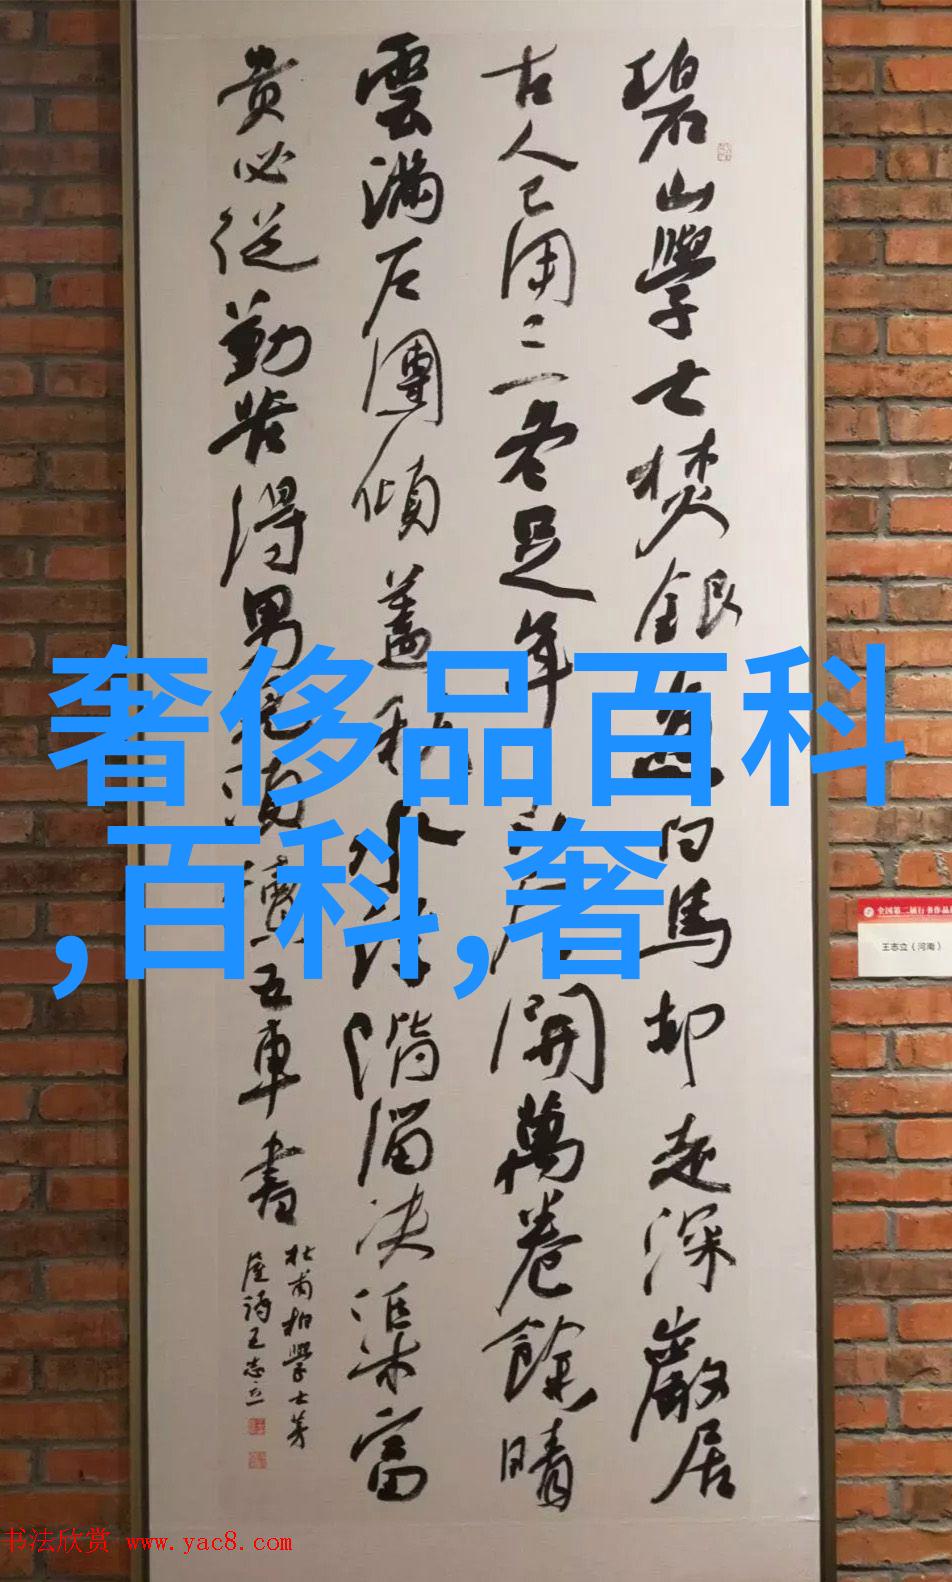 碧山學士焚銀魚白馬却走深巖居
古人已用三冬足年少今開萬卷餘晴
雲滿户團傾蓋秋水浮階溜决渠富
貴必從勤苦得男兒須讀五車書
杜甫柏學士茅
屋詩王志立
奢侈品百科
,百科,奢
全国第二届行书作品
王志立（河南）
书法欣赏 www.yac8.com